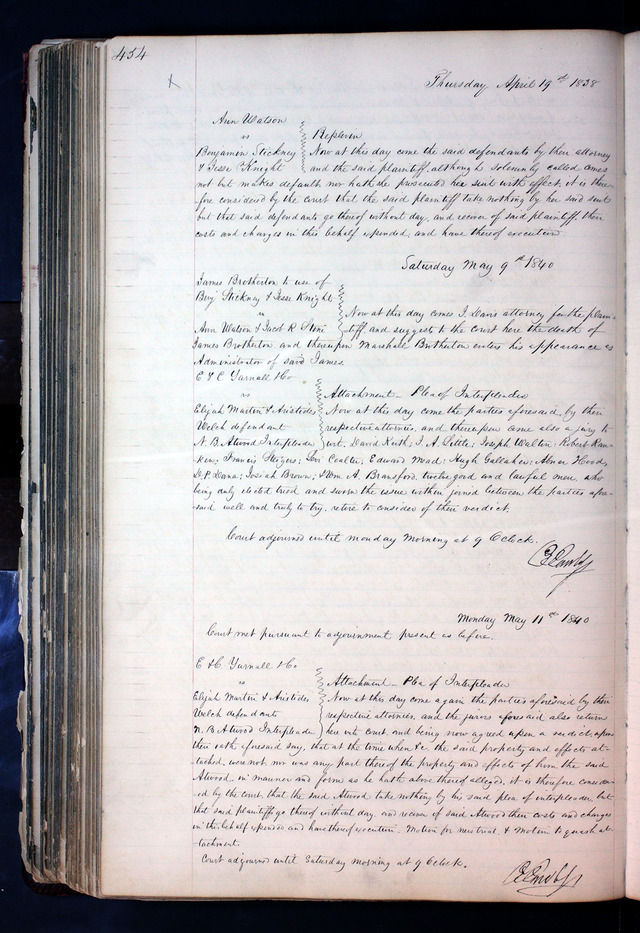 454
Thursday April 19th 1838
Ann Watson
vs
Replevin
Benjamin Stickney
Now at this day come the said defendants by their attorney
& Jesse Knight
and the said plaintiff, although solemnly called, comes
not but makes default, nor hath she prosecuted her said writ with effect, it is there-
fore considered by the court that the said plaintiff take nothing by her said writ
but that said defendants go thereof without day, and recover of said plaintiff, their
costs and charges in this behalf expended, and have thereof execution
Saturday May 9th 1840
James Brotherton to use of
Benj Stickney & Jesse Knight
vs
Now at this day comes J. Davis attorney for the plain-
Ann Watson & Jacob R. Stine
tiff, and suggests to the court here the death of
James Brotherton, and thereupon Marshall Brotherton enters his appearance as
Administrator of said James.
E & C Yarnall & Co
vs
Attachment – Plea of Interpleader
Elijah Martin & Aristides
Now at this day come the parties aforesaid, by their
Welch defendant
respective attornies, and thereupon came also a jury to
N. B. Atwood Interpleader
wit, David Keith; J. A. Little; Joseph Walton; Robert Ran-
ken; Francis Steigers; Levi Coalter; Edward Mead; Hugh Gallaher; Abner Hood;
D. P. Dana; Josiah Brown; & Wm A. Bransford, twelve good and lawful men, who
being duly elected tried and sworn the issue within joined between the parties afore-
said well and truly to try, retire to consider of their verdict.
Court adjourned until monday Morning at 9 Oclock.
Monday May 11th 1840
Court met pursuant to adjournment present as before.
E & C Yarnall & Co
vs
Attachment – Plea of Interpleader
Elijah Martin & Aristides
Now at this day come again the parties aforesaid by their
Welch defendants
respective attornies, and the jurors aforesaid also return
N. B Atwood Interpleader
here into court, and being now agreed upon a verdict, upon
their oath aforesaid say, that at the time when &c the said property and effects at-
tached, were not nor was any part thereof the property and effects of him the said
Atwood in manner and form as he hath above thereof alleged, it is therefore consider-
ed by the court, that the said Atwood take nothing by his said plea of interpleader, but
that said plaintiffs go thereof without day, and recover of said Atwood their costs and charges
in this behalf expended and have thereof execution. Motion for new trial & Motion to quash at-
tachment.
Court adjourned until Saturday morning at 9 Oclock.